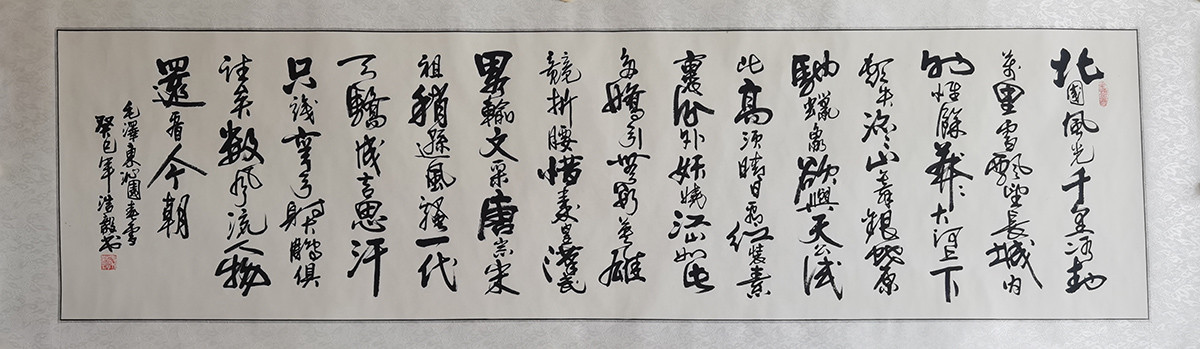 北國風光千里冰封
萬里雪飄望長城内
外惟餘莽々大河上下
頓失滔々山舞銀蛇原
馳蠟象欲與天公試
比高須晴日看紅裝素
裹分外妖嬈江山如此
多嬌引無數英雄
競折腰惜秦皇漢武
畧輸文采唐宗宋
祖稍遜風騷一代
天驕成吉思汗
只識彎弓射大鵰俱
往矣数風流人物
還看今朝
毛澤東沁園春雪
癸巳年浩毅书